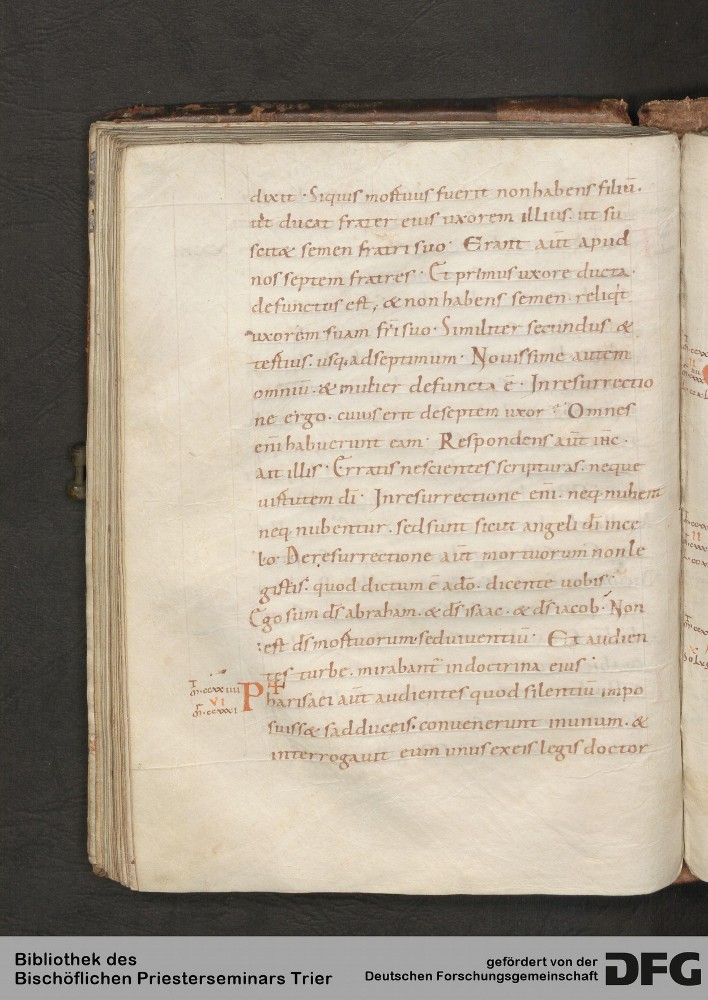 dixit · Siquis mortuus fuerit nonhabens filiū ·
ut ducat frater eius uxorem illius · ut su
scitæ semen fratri suo · Erant aūt apud
nos septem fratres · Et primus uxore ducta ·
defunctus est, & non habens semen · reliq̇t
uxorem suam fr̄i suo · Similiter secundus &
tertius · usq; adseptimum · Nouissime autem
omniū · & mulier defuncta ē · Inresurrectio
ne ergo · cuius erit deseptem uxor · Omnes
eni̅ habuerunt eam · Respondens aūt ih̅c ·
ait illis · Erratis nescientes scripturas · neque
uirtutem di̅ · Inresurrectione eni̅ · neq; nubent
neq; nubentur · sed sunt sicut angeli di̅ in ce
lo · De resurrectione aūt mortuorum non le
gistis · quod dictum ē a do̅ · dicente uobis ·
Ego sum ds̅ abraham · & ds̅ isaac · & ds̅ iacob · Non
est ds̅ mortuorum sed uiuentiū · Et audien
tes turbe · mirabant̄ in doctrina eius ·
Pharisaei aūt audientes quod silentiū impo
suiss& sadduceis · conuenerunt in unum · &
interrogauit eum unus ex eis legis doctor
VI
Bibliothek des
Bischöflichen Priesterseminars Trier
gefördert von der
Deutschen Forschungsgemeinschaft
DFG